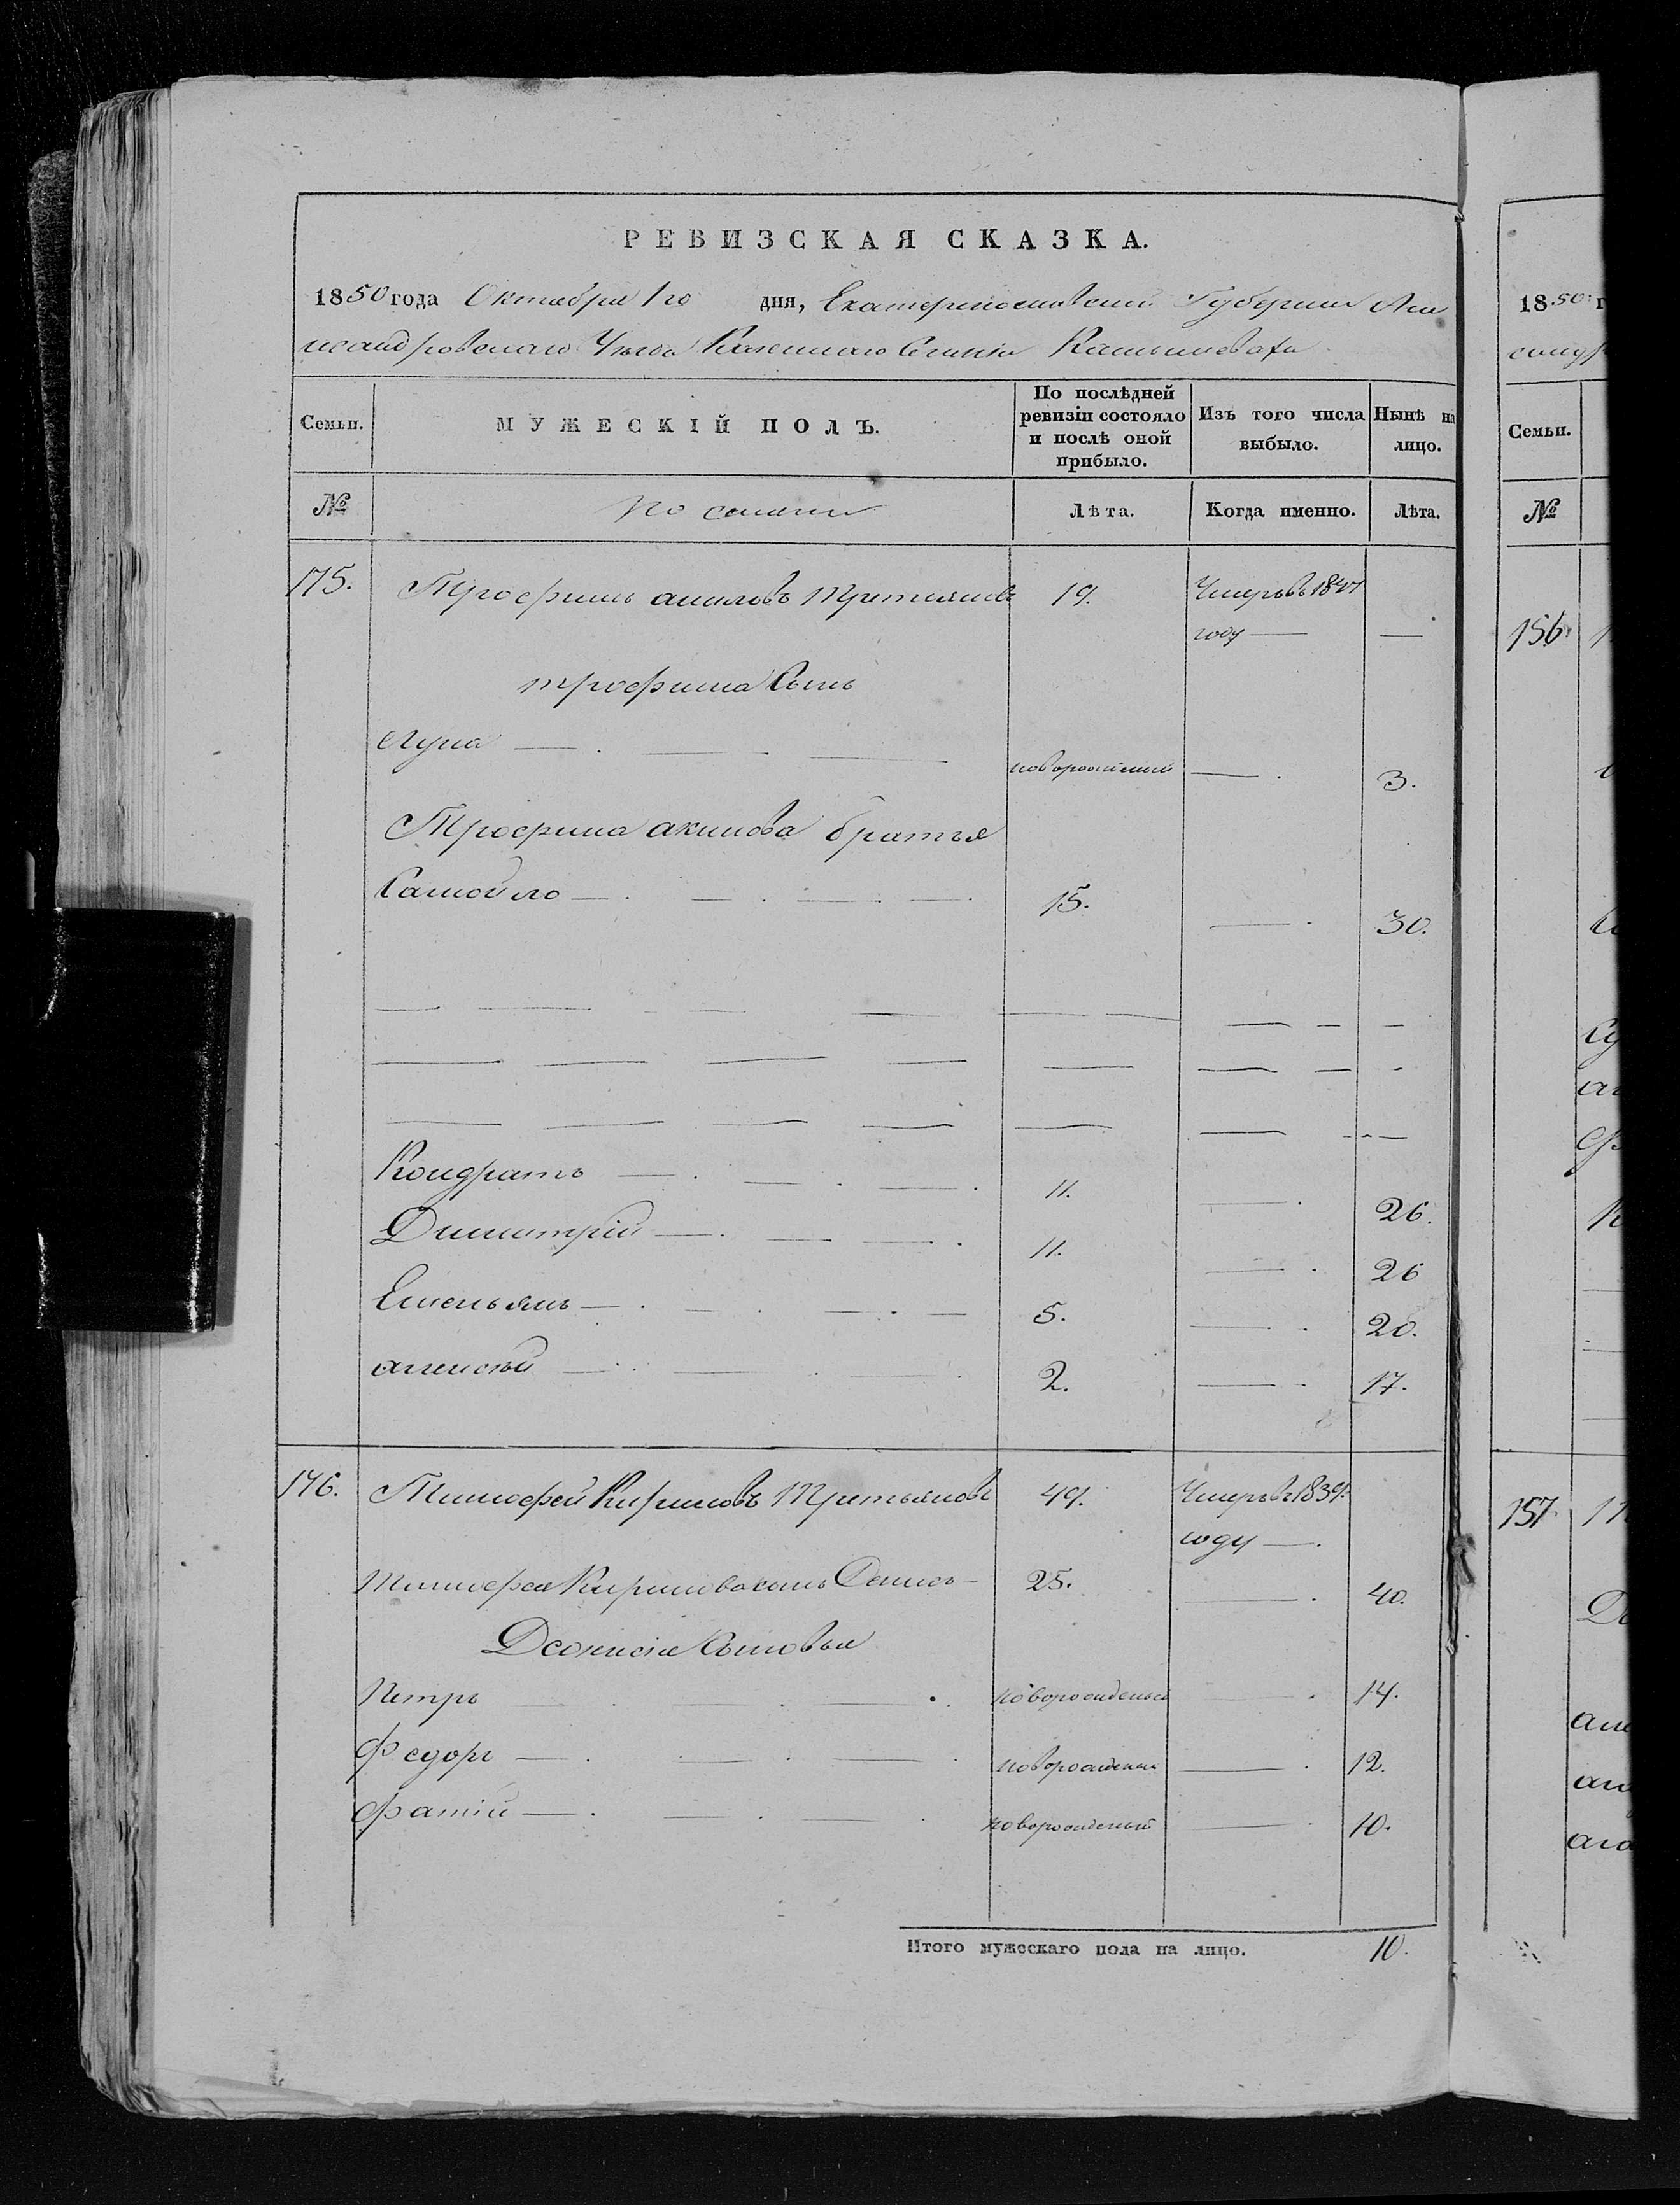 РЕВИЗСКАЯ СКАЗКА.
1850 года Октября 1го дня, Екатеринославской Губернии Алек
сандровскаго Уѣзда Казеннаго Селенія Камышевахи
Семьи. МУЖЕСКІЙ ПОЛЪ. По послѣдней ревизіи состояло и послѣ оной прибыло. Изъ того числа выбыло. Нынѣ на лицо.
№ Лѣта. Когда именно. Лѣта.
175. Трофимъ акимовъ Третьяковъ 19. Умеръ въ 1847
году — —
трофима Сынъ
Лука — . — — новорожденый — . 3.
Трофима акимова братья
Самойло — . — . — — . 15. — . 30.
Кондратъ — . — . — . 11. — . 26.
Димитрій — . — — . 11. — . 26
Емельянъ — . — . — . — 5. — . 20.
алексѣй — . — . — . 2. — . 17.
176. Тимофей Кириловъ Третьяковъ 49. Умеръ въ 1839.
году — .
Тимофея Кирилова сынъ Денисъ — 25. — . 40.
Деонисія Сыновья
Петръ — . — . — . новорожденый — . 14.
Федоръ — . — . — . новорожденый — . 12.
Фатій — . — . — . новорожденый — . 10.
Итого мужескаго пола на лицо. 10.
1850 г
Семьи.
№
156
157